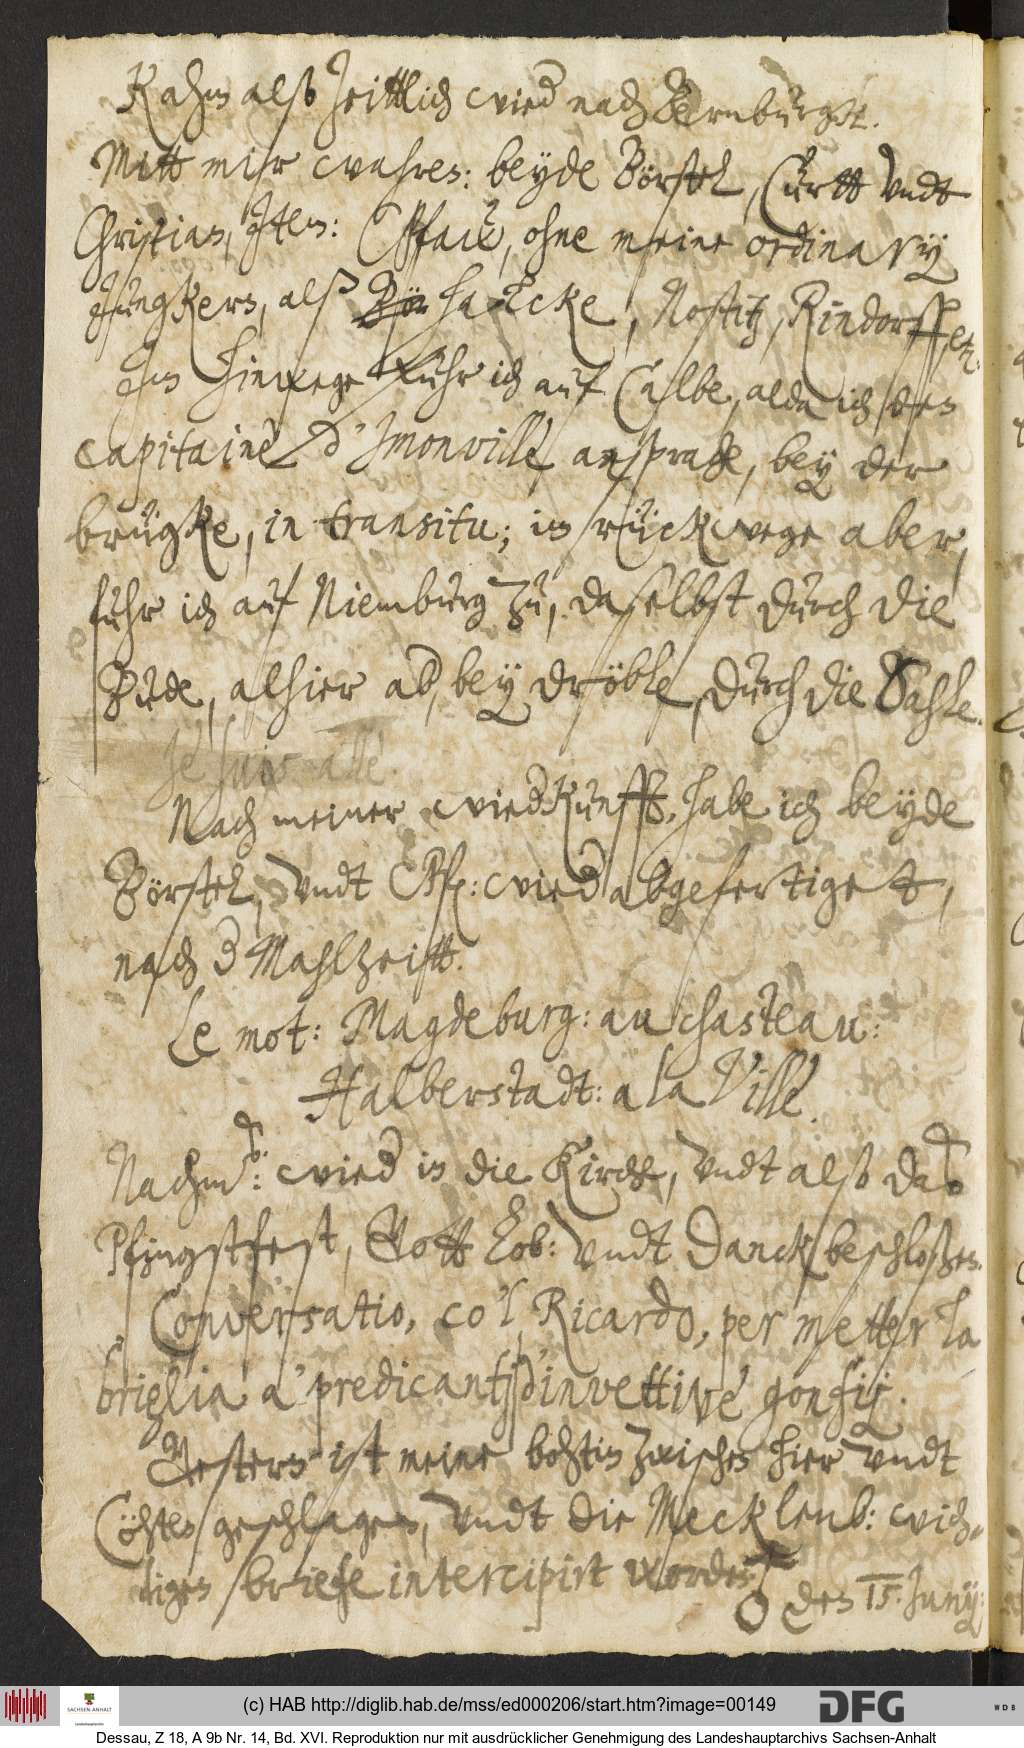 Kahm alß zeittlich wied nach Bernburgk.
Mitt mihr wahren: beyde Börstel, Curtt vndt
Christian, Item: C Pfau, ohne meine ordinarij
Jungkers, alß Bör hals Ecke, Nostitz, Rindorff etc.
Im hinwege fuhr ich auf Calbe, alda ich den
capitaine d'Imonville ansprach, bey der
brügke, in transitu; im rückwege aber,
fuhr ich auf Niemburg zu, daselbst durch die
Bude, alhier ab, bey dröble, durch die Sahle.
Je suis allé.
Nach meiner wiedkunfft, habe ich beyde
Börstel, vndt CPf: wied abgefertigett,
nach 3 Mahlzeitt.
Le mot: Magdeburg: au chasteau:
Halberstadt: a la Ville.
Nachmd: wied in die Kirche, vndt also das
Pfingstfest, Gott lob: vndt Danck beschloßen.
Conversatio, co'l Ricardo, per metter la
briglia a' predicantj d'invettive gonfij.
Gestern ist meine bohtin zwischen hier vndt
Cöhten geschlagen, vndt die Mecklenb: wich=
tigen briefe intercipirt worden
den 15. Junij:
(c) HAB http://diglib.hab.de/mss/ed000206/start.htm?image=00149
SACHSEN-ANHALT
Landeshauptarchiv
DFG
W D B
Dessau, Z 18, A 9b Nr. 14, Bd. XVI. Reproduktion nur mit ausdrücklicher Genehmigung des Landeshauptarchivs Sachsen-Anhalt